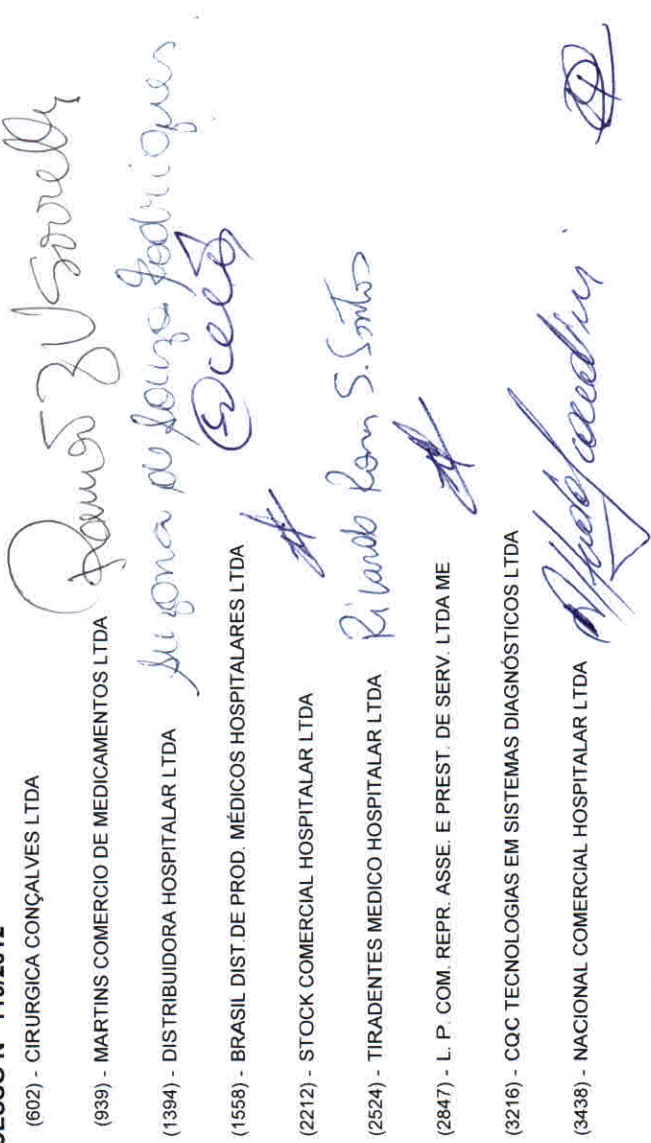 (602) - CIRURGICA CONÇALVES LTDA
(939) - MARTINS COMERCIO DE MEDICAMENTOS LTDA
(1394) - DISTRIBUIDORA HOSPITALAR LTDA
de Souza Rodrigues
(1558) - BRASIL DIST.DE PROD. MÉDICOS HOSPITALARES LTDA
(2212) - STOCK COMERCIAL HOSPITALAR LTDA
(2524) - TIRADENTES MEDICO HOSPITALAR LTDA
Ricardo S. Santos
(2847) - L. P. COM. REPR. ASSE. E PREST. DE SERV. LTDA ME
(3216) - CQC TECNOLOGIAS EM SISTEMAS DIAGNÓSTICOS LTDA
(3438) - NACIONAL COMERCIAL HOSPITALAR LTDA